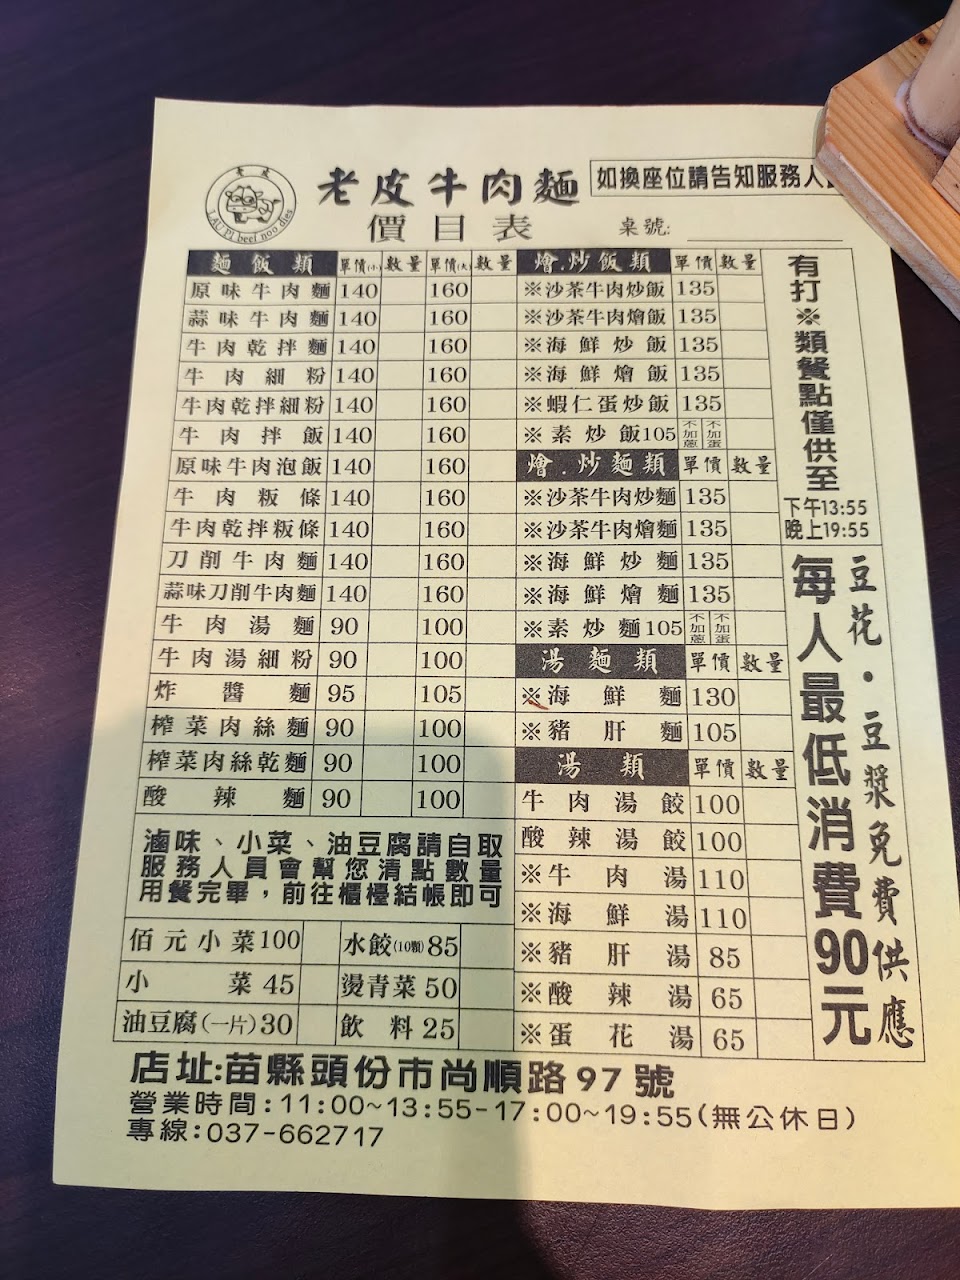 老皮
LAU PI beef noo dles
老皮牛肉麵
如換座位請告知服務人
價目表
桌號:
麵飯類 單價(小) 數量 單價(大) 數量
原味牛肉麵 140 160
蒜味牛肉麵 140 160
牛肉乾拌麵 140 160
牛肉細粉 140 160
牛肉乾拌細粉 140 160
牛肉拌飯 140 160
原味牛肉泡飯 140 160
牛肉粄條 140 160
牛肉乾拌粄條 140 160
刀削牛肉麵 140 160
蒜味刀削牛肉麵 140 160
牛肉湯麵 90 100
牛肉湯細粉 90 100
炸醬麵 95 105
榨菜肉絲麵 90 100
榨菜肉絲乾麵 90 100
酸辣麵 90 100
滷味、小菜、油豆腐請自取
服務人員會幫您清點數量
用餐完畢，前往櫃檯結帳即可
佰元小菜 100 水餃(10顆) 85
小菜 45 燙青菜 50
油豆腐(一片) 30 飲料 25
燴.炒飯類 單價 數量
※沙茶牛肉炒飯 135
※沙茶牛肉燴飯 135
※海鮮炒飯 135
※海鮮燴飯 135
※蝦仁蛋炒飯 135
※素炒飯 105 不加蔥 不加蛋
燴.炒麵類 單價 數量
※沙茶牛肉炒麵 135
※沙茶牛肉燴麵 135
※海鮮炒麵 135
※海鮮燴麵 135
※素炒麵 105 不加蔥 不加蛋
湯麵類 單價 數量
※海鮮麵 130
※豬肝麵 105
湯類 單價 數量
牛肉湯餃 100
酸辣湯餃 100
※牛肉湯 110
※海鮮湯 110
※豬肝湯 85
※酸辣湯 65
※蛋花湯 65
有打※類餐點僅供至
下午13:55
晚上19:55
每人最低消費90元
豆花・豆漿免費供應
店址:苗縣頭份市尚順路97號
營業時間:11:00~13:55-17:00~19:55(無公休日)
專線:037-662717